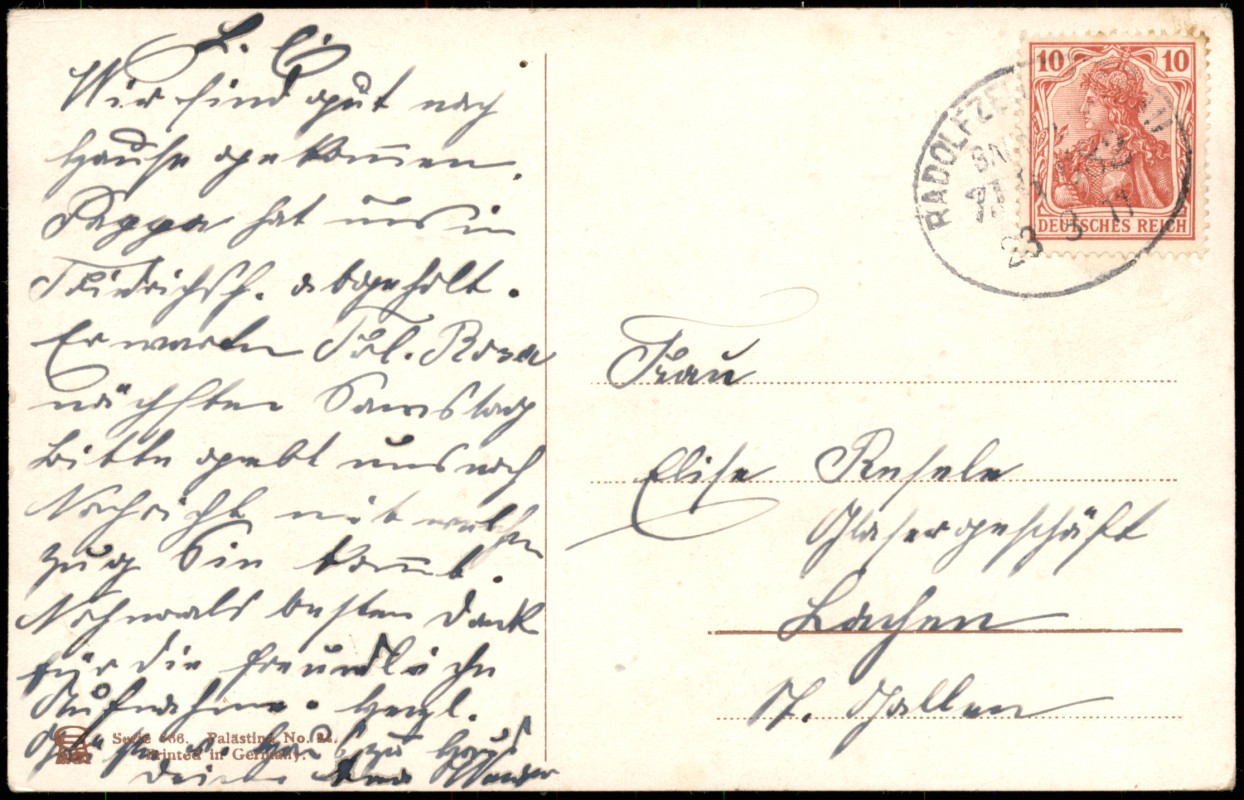 L. E.
Wir sind gut nach
Hause gekommen.
Pappa hat uns in
Fridrichsh. abgeholt.
Erwarten Frl. Rosa
nächsten Samstag
Bitte gebt uns noch
Nachricht mit welchen
Zug Sie kommt.
Nochmals besten Dank
für die freundliche
Aufnahme. Herzl.
Grüße
Deine
Serie 786. Palästina No.
Printed in Germany.
10 10
DEUTSCHES REICH
RADOLFZE
23 3 11
Frau
Elise Resele
Glasergeschäft
Lachen
St. Gallen